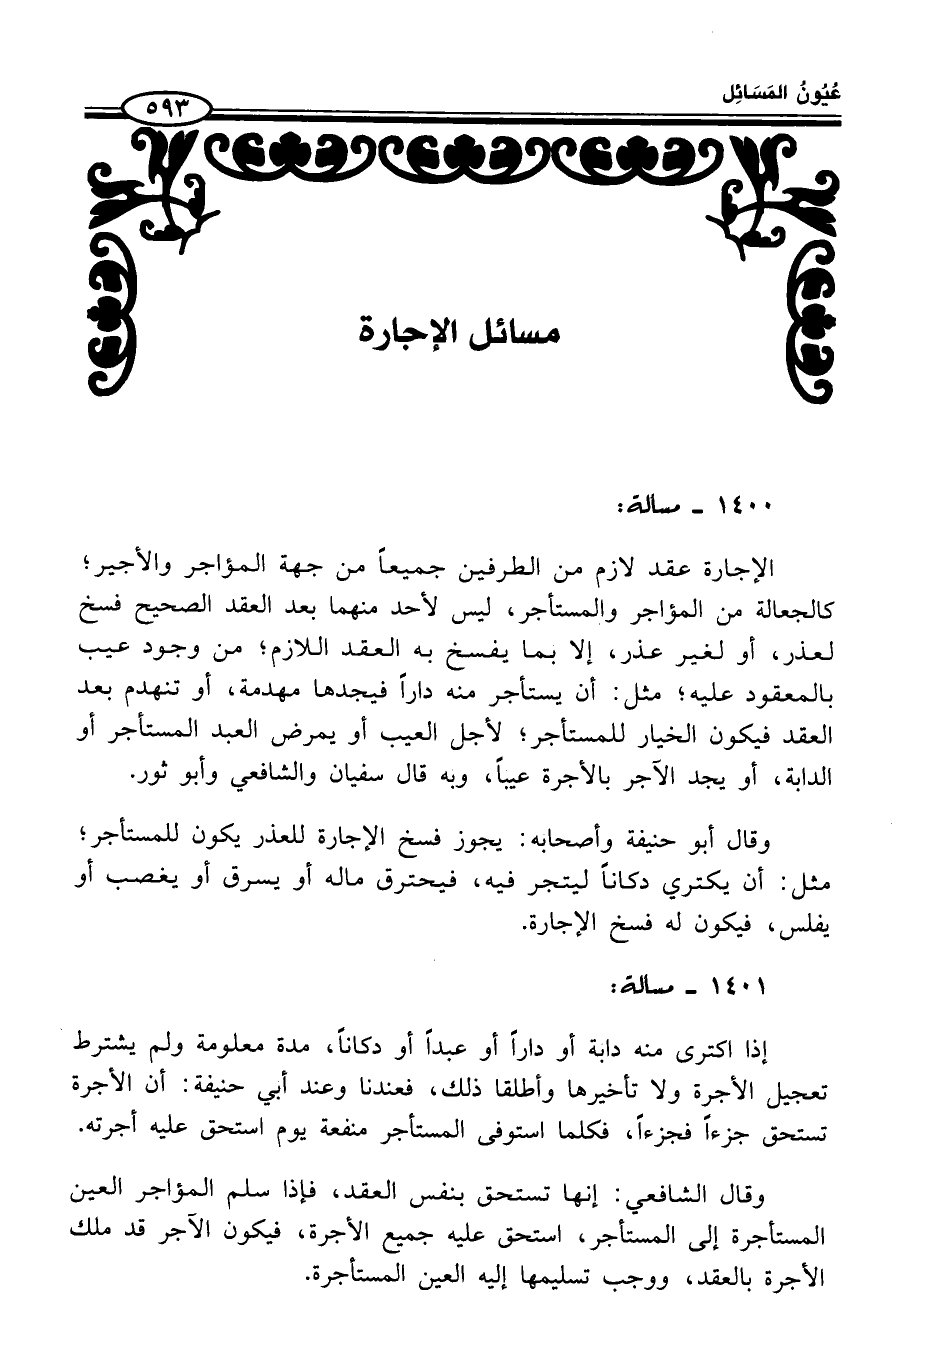 عُيُونُ المَسَائِل
٥٩٣
مسائل الإجارة
١٤٠٠ - مسالة:
الإجارة عقد لازم من الطرفين جميعاً من جهة المؤاجر والأجير؛
كالجعالة من المؤاجر والمستأجر، ليس لأحد منهما بعد العقد الصحيح فسخ
لعذر، أو لغير عذر، إلا بما يفسخ به العقد اللازم؛ من وجود عيب
بالمعقود عليه؛ مثل: أن يستأجر منه داراً فيجدها مهدمة، أو تنهدم بعد
العقد فيكون الخيار للمستأجر؛ لأجل العيب أو يمرض العبد المستأجر أو
الدابة، أو يجد الآجر بالأجرة عيباً، وبه قال سفيان والشافعي وأبو ثور.
وقال أبو حنيفة وأصحابه: يجوز فسخ الإجارة للعذر يكون للمستأجر؛
مثل: أن يكتري دكاناً ليتجر فيه، فيحترق ماله أو يسرق أو يغصب أو
يفلس، فيكون له فسخ الإجارة.
١٤٠١ - مسالة:
إذا اكترى منه دابة أو داراً أو عبداً أو دكاناً، مدة معلومة ولم يشترط
تعجيل الأجرة ولا تأخيرها وأطلقا ذلك، فعندنا وعند أبي حنيفة: أن الأجرة
تستحق جزءاً فجزءاً، فكلما استوفى المستأجر منفعة يوم استحق عليه أجرته.
وقال الشافعي: إنها تستحق بنفس العقد، فإذا سلم المؤاجر العين
المستأجرة إلى المستأجر، استحق عليه جميع الأجرة، فيكون الآجر قد ملك
الأجرة بالعقد، ووجب تسليمها إليه العين المستأجرة.